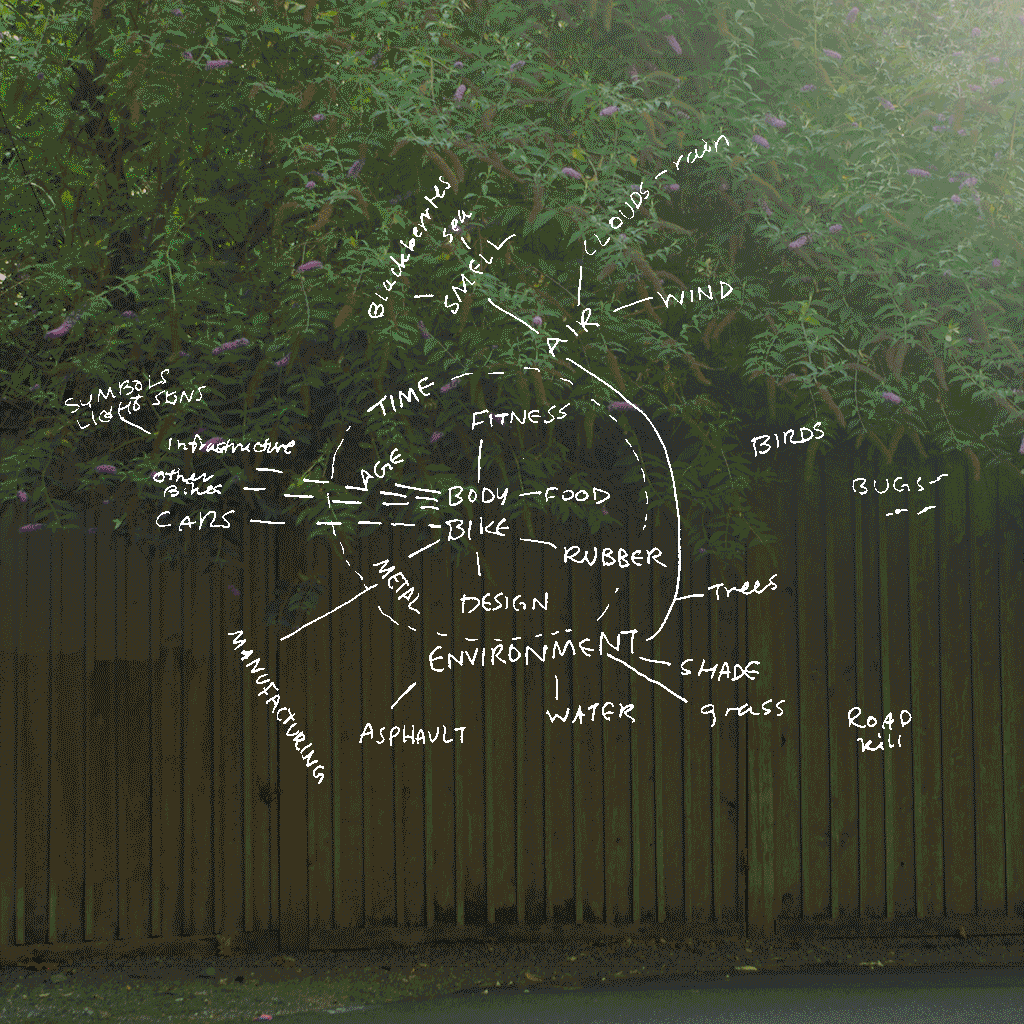 Blackberries
sea
SMELL
CLOUDS - rain
AIR
WIND
TIME
SYMBOLS
LIGHTS SIGNS
Infrastructure
Other
Bikes
CARS
AGE
FITNESS
BODY - FOOD
BIKE
RUBBER
METAL
DESIGN
BIRDS
BUGS
Trees
ENVIRONMENT
SHADE
grass
WATER
ASPHAULT
MANUFACTURING
ROAD
kill